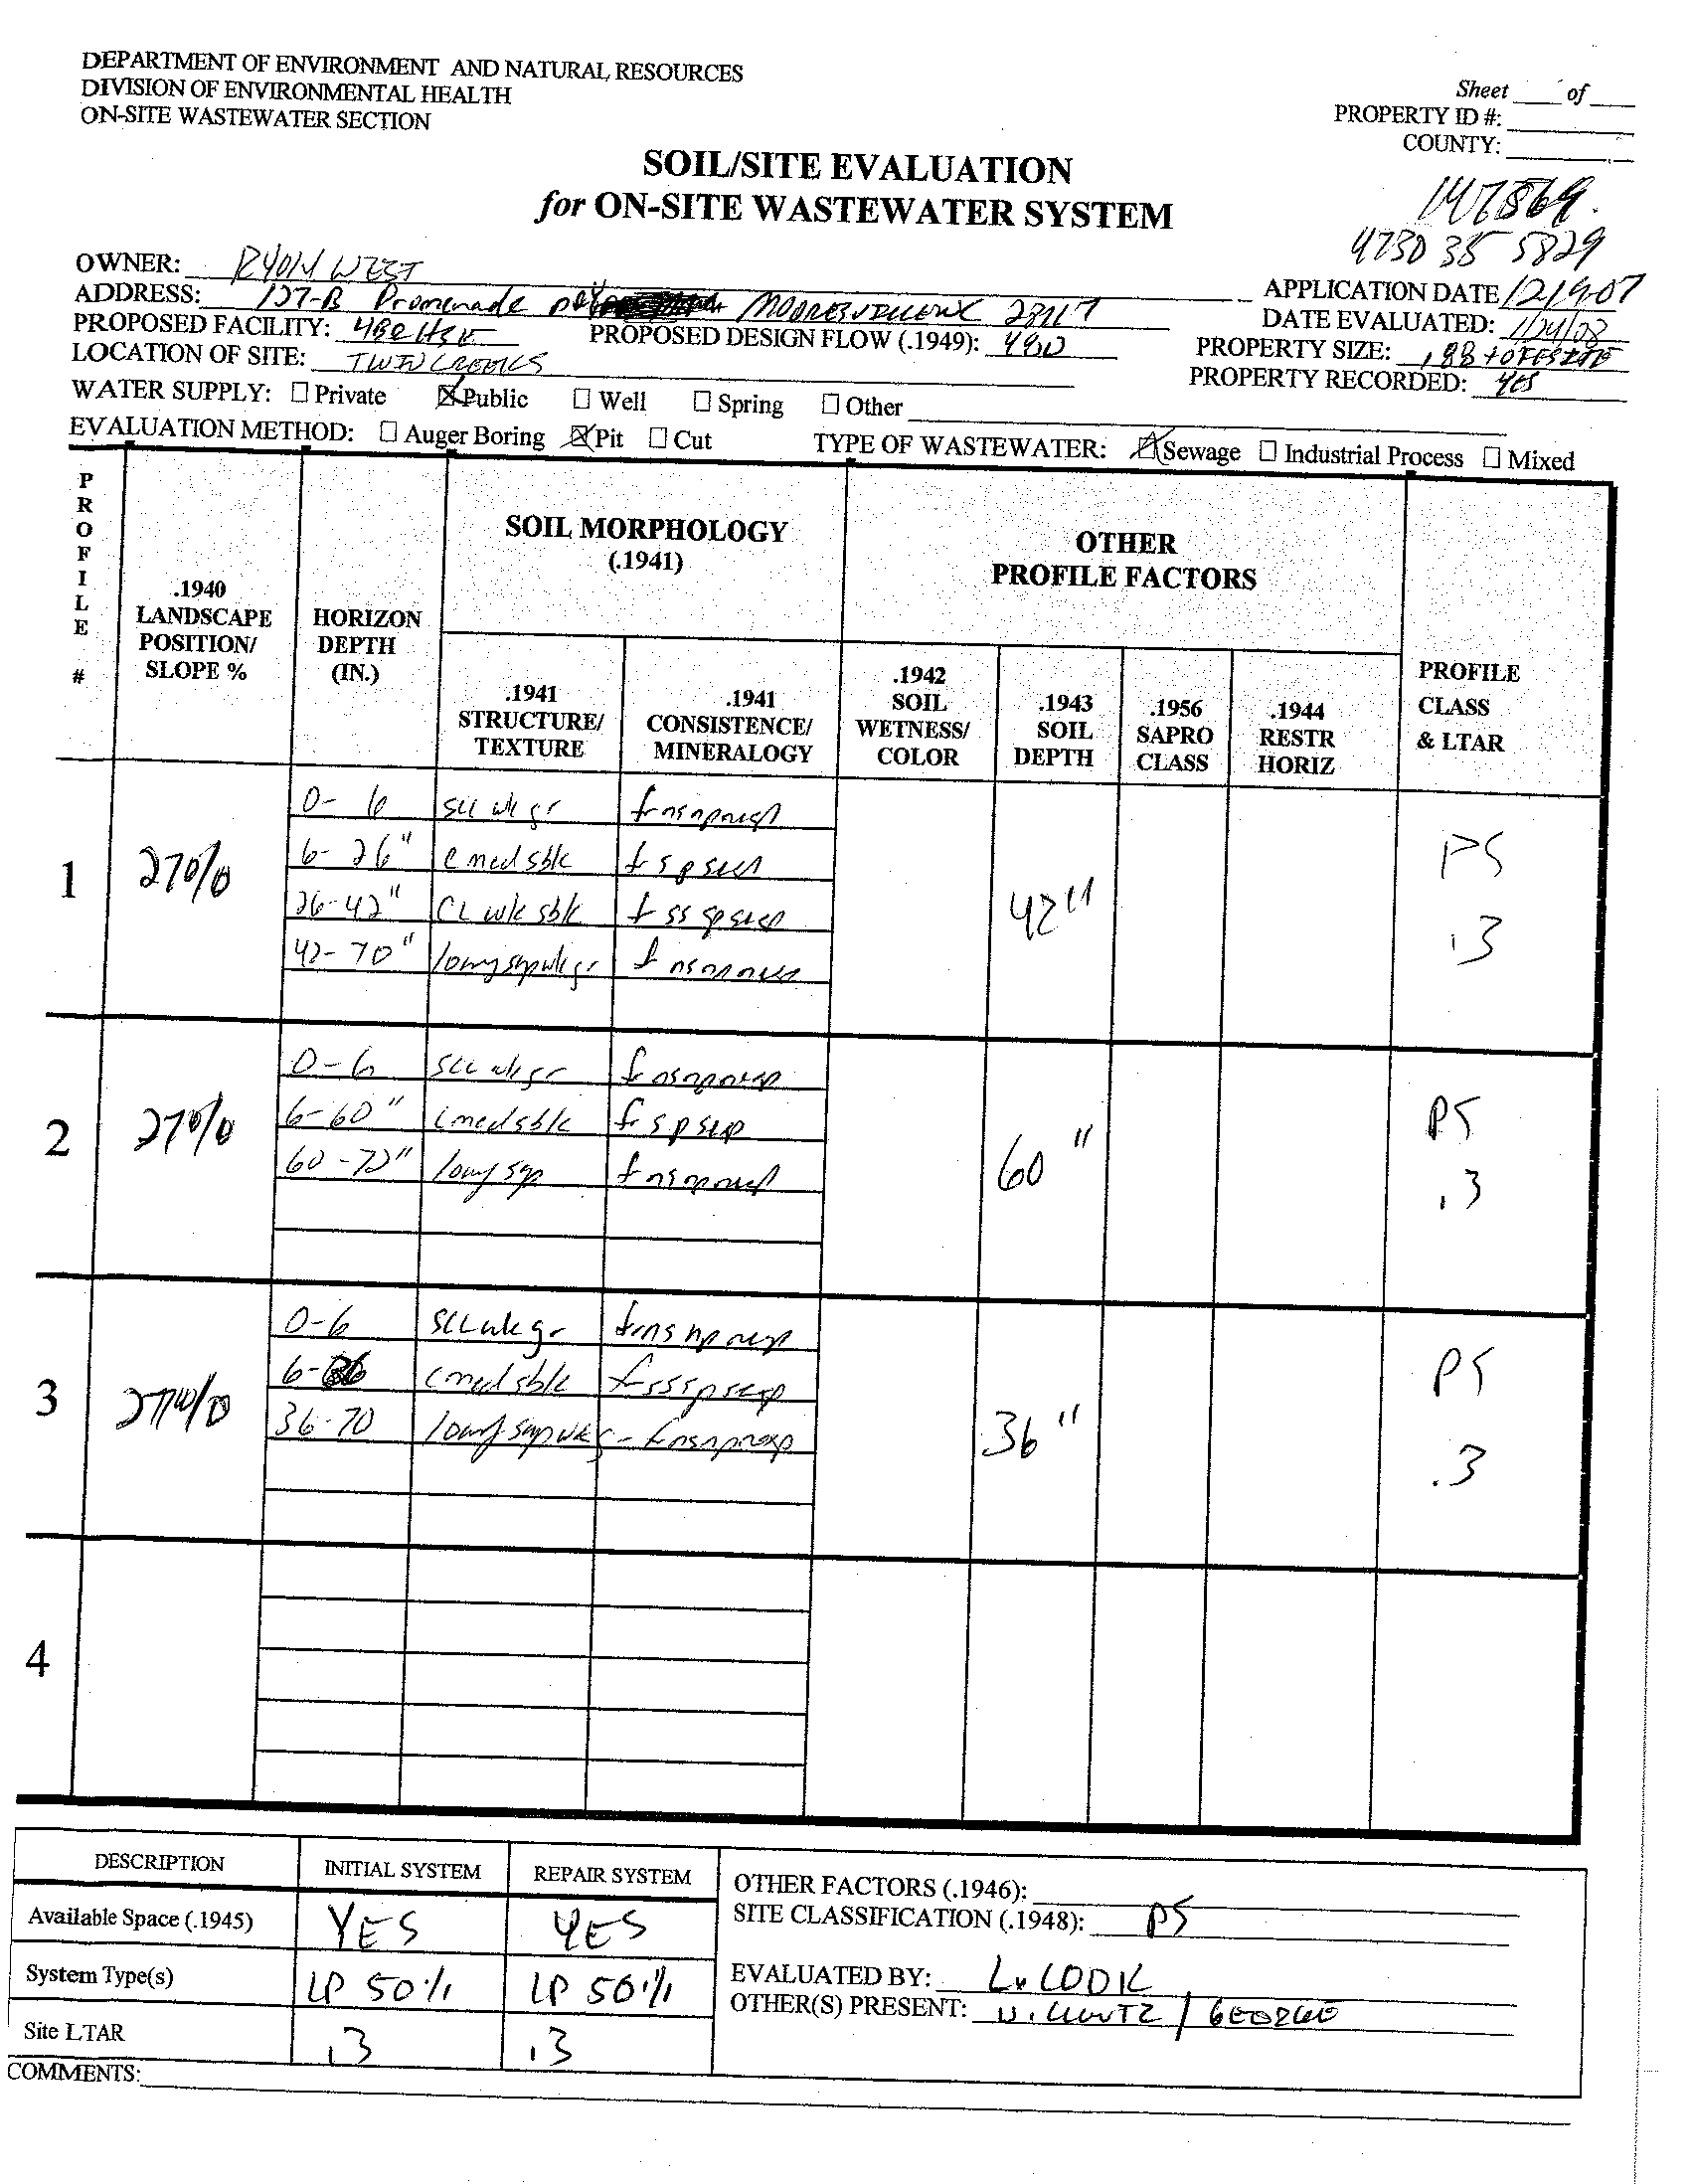 DEPARTMENT OF ENVIRONMENT AND NATURAL RESOURCES
DIVISION OF ENVIRONMENTAL HEALTH
ON-SITE WASTEWATER SECTION
Sheet ____ of ____
PROPERTY ID #:
COUNTY:
SOIL/SITE EVALUATION
for ON-SITE WASTEWATER SYSTEM
4730 35 5829
OWNER: WEST
ADDRESS: 127-B Promenade 28117
APPLICATION DATE 12/19-07
PROPOSED FACILITY: PROPOSED DESIGN FLOW (.1949): 480
DATE EVALUATED: 1/24/08
LOCATION OF SITE: TWIN CREEKS
PROPERTY SIZE: .88
PROPERTY RECORDED: YES
WATER SUPPLY: ☐ Private ☒ Public ☐ Well ☐ Spring ☐ Other
EVALUATION METHOD: ☐ Auger Boring ☒ Pit ☐ Cut TYPE OF WASTEWATER: ☒ Sewage ☐ Industrial Process ☐ Mixed
PROFILE #
.1940 LANDSCAPE POSITION/ SLOPE %
HORIZON DEPTH (IN.)
SOIL MORPHOLOGY (.1941)
.1941 STRUCTURE/ TEXTURE
.1941 CONSISTENCE/ MINERALOGY
OTHER PROFILE FACTORS
.1942 SOIL WETNESS/ COLOR
.1943 SOIL DEPTH
.1956 SAPRO CLASS
.1944 RESTR HORIZ
PROFILE CLASS & LTAR
1 27% 42" PS .3
0-6 SCL wk gr fr ns np nexp
6-26" C med sbk fr s p sexp
26-42" CL wk sbk fr ss sp sexp
42-70" loamy sap wk gr fr ns np nexp
2 27% 60" PS .3
0-6 SCL wk gr fr ns np nexp
6-60" C med sbk fr s p sexp
60-72" loamy sap fr ns np nexp
3 27% 36" PS .3
0-6 SCL wk gr fr ns np nexp
6-36 C med sbk fr ss sp sexp
36-70 loamy sap wk gr fr ns np nexp
4
DESCRIPTION INITIAL SYSTEM REPAIR SYSTEM
Available Space (.1945) YES YES
System Type(s) LP 50% LP 50%
Site LTAR .3 .3
OTHER FACTORS (.1946):
SITE CLASSIFICATION (.1948): PS
EVALUATED BY: L. COOK
OTHER(S) PRESENT: / GEORGE
COMMENTS: